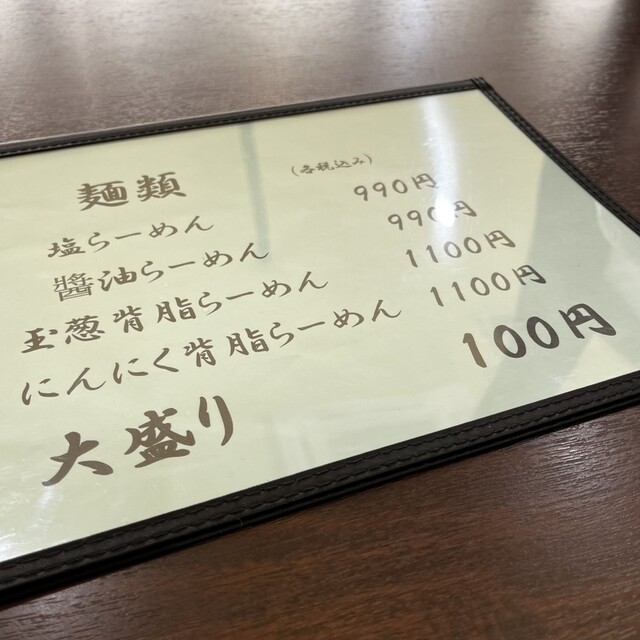 麺類 (各税込み)
塩らーめん 990円
醬油らーめん 990円
玉葱背脂らーめん 1100円
にんにく背脂らーめん 1100円
大盛り 100円